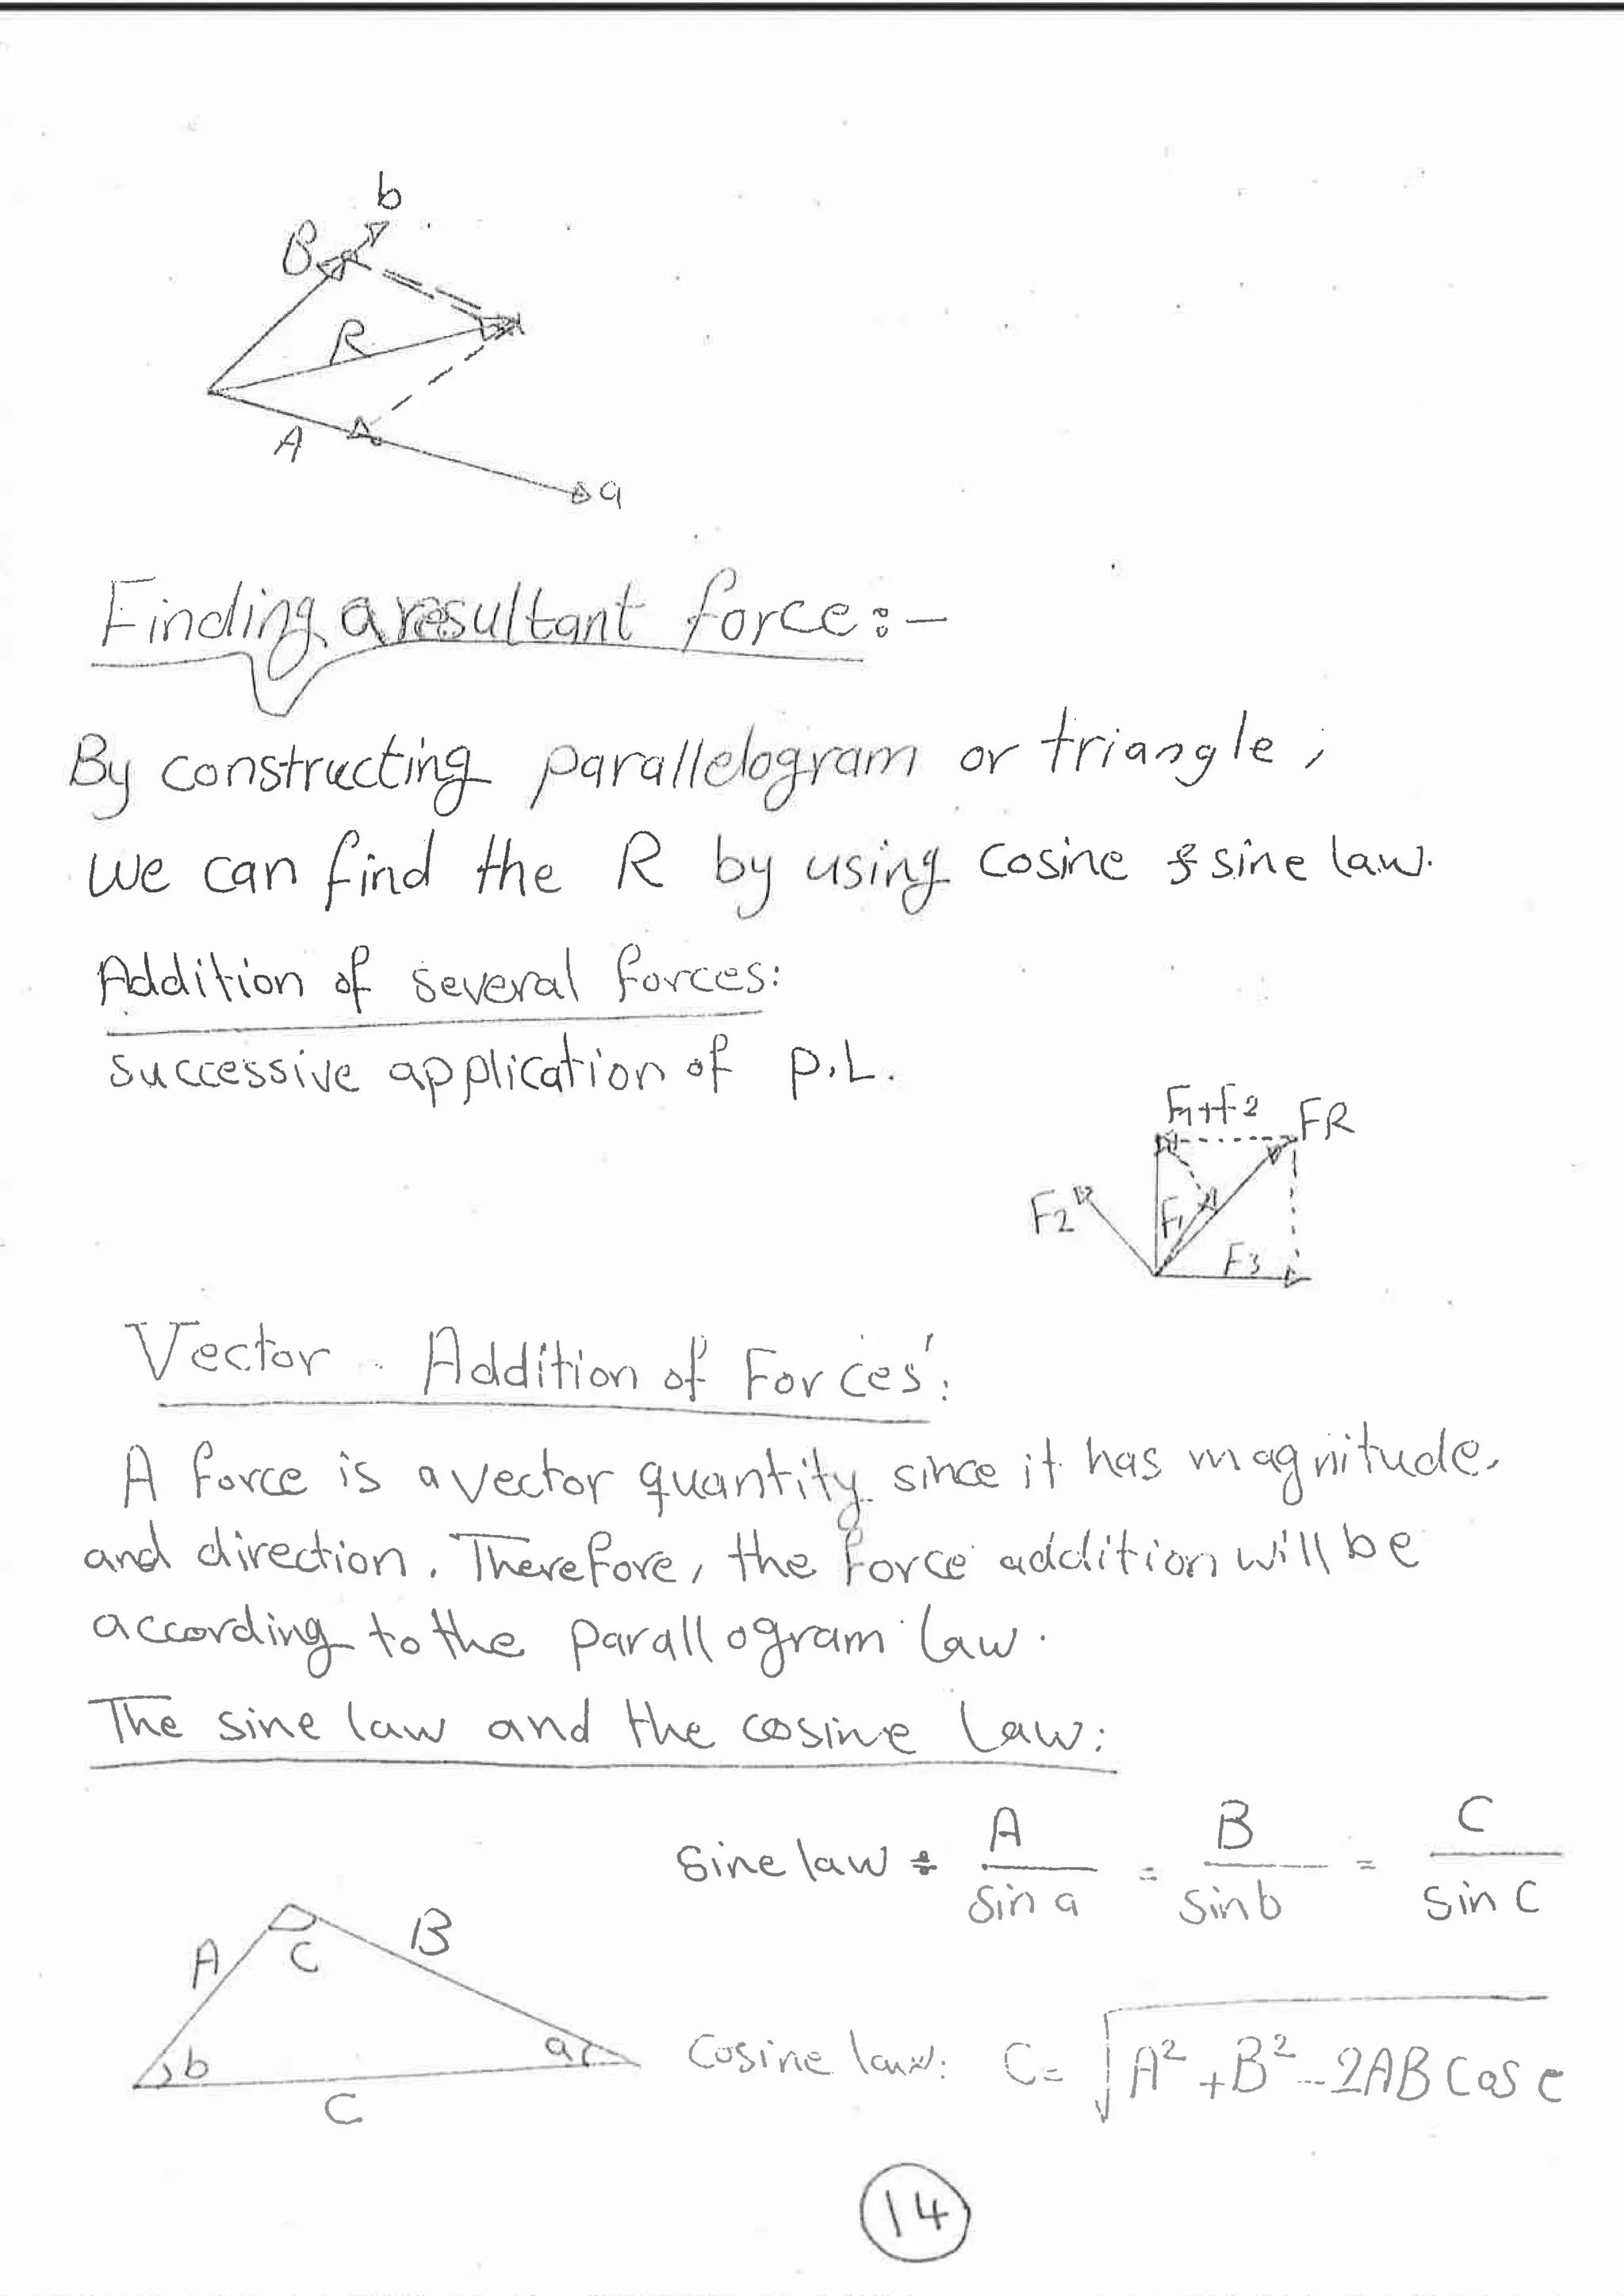 b
B
R
A
a
Finding a resultant force:-
By constructing parallelogram or triangle,
we can find the R by using cosine & sine law.
Addition of several forces:
successive application of P.L.
F1+F2 FR
F2 F1
F3
Vector Addition of Forces:
A force is a vector quantity since it has magnitude,
and direction. Therefore, the force addition will be
according to the parallogram law.
The sine law and the cosine law:
Sine law: A/sin a = B/sin b = C/sin c
A c B
b a
C
Cosine law: C = √A²+B²-2AB cos c
14